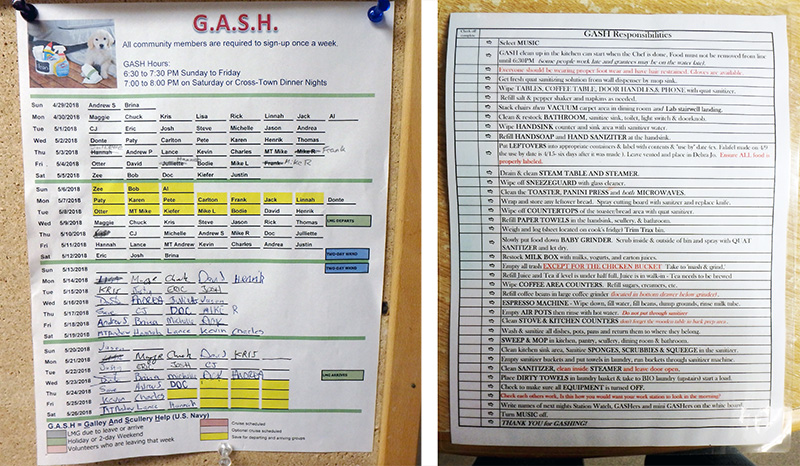 G.A.S.H.
All community members are required to sign-up once a week.
GASH Hours:
6:30 to 7:30 PM Sunday to Friday
7:00 to 8:00 PM on Saturday or Cross-Town Dinner Nights
Sun 4/29/2018 Andrew S Brina
Mon 4/30/2018 Maggie Chuck Kris Lisa Rick Linnah Jack Al
Tue 5/1/2018 CJ Eric Josh Steve Michelle Jason Andrea
Wed 5/2/2018 Donte Paty Carlton Pete Karen Henrik Thomas
Thu 5/3/2018 Hannah Andrew P Lance Kevin Charles MT Mike Mike R Frank
Fri 5/4/2018 Otter David Julliette Bodie Mike L Frank Mike R
Sat 5/5/2018 Zee Bob Doc Kiefer Justin
Sun 5/6/2018 Zee Bob Al
Mon 5/7/2018 Paty Karen Pete Carlton Frank Jack Linnah Donte
Tue 5/8/2018 Otter MT Mike Kiefer Mike L Bodie David Henrik
Wed 5/9/2018 Maggie Chuck Kris Steve Jason Rick Thomas LMG DEPARTS
Thu 5/10/2018 CJ Michelle Andrew S Mike R Doc Julliette
Fri 5/11/2018 Hannah Lance MT Andrew Kevin Charles Andrea Justin
Sat 5/12/2018 Eric Josh Brina TWO-DAY WKND
Sun 5/13/2018 TWO-DAY WKND
Mon 5/14/2018 Chuck David Henrik
Tue 5/15/2018 KRIS ERIC JOSH
Wed 5/16/2018 ANDREA Jason
Thu 5/17/2018 CJ DOC MIKE R
Fri 5/18/2018 Andrew S Brina Michelle
Sat 5/19/2018 Hannah Lance Kevin Charles
Sun 5/20/2018 Jason
Mon 5/21/2018 Chuck David KRIS
Tue 5/22/2018 ERIC JOSH CJ
Wed 5/23/2018 Michelle ANDREA LMG ARRIVES
Thu 5/24/2018 DOC
Fri 5/25/2018 Kevin Charles
Sat 5/26/2018 Lance Hannah
G.A.S.H = Galley And Scullery Help (U.S. Navy)
LMG due to leave or arrive
Holiday or 2-day Weekend
Volunteers who are leaving that week
Cruise scheduled
Optional cruise scheduled
Save for departing and arriving groups
Check off complete
GASH Responsibilities
Select MUSIC
GASH clean up in the kitchen can start when the Chef is done, Food must not be removed from line
until 6:30PM (some people work late and grantees may be on the water late).
Everyone should be wearing proper foot wear and have hair restrained. Gloves are available.
Get fresh quat sanitizing solution from wall dispenser by mop sink.
Wipe TABLES, COFFEE TABLE, DOOR HANDLES,& PHONE with quat sanitizer.
Refill salt & pepper shaker and napkins as needed.
Stack chairs then VACUUM carpet area in dining room and Lab stairwell landing.
Clean & restock BATHROOM, sanitize sink, toilet, light switch & doorknob.
Wipe HANDSINK counter and sink area with sanitizer water.
Refill HANDSOAP and HAND SANIZITER at the handsink.
Put LEFTOVERS into appropriate containers & label with contents & "use by" date (ex. Falafel made on 4/9
the use by date is 4/15- six days after it was made ). Leave vented and place in Debra Jo. Ensure ALL food is
properly labeled.
Drain & clean STEAM TABLE AND STEAMER.
Wipe off SNEEZEGUARD with glass cleaner.
Clean the TOASTER, PANINI PRESS and both MICROWAVES.
Wrap and store any leftover bread. Spray cutting board with sanitizer and replace knife.
Wipe off COUNTERTOPS of the toaster/bread area with quat sanitizer.
Refill PAPER TOWELS in the handsink, scullery, & bathroom.
Weigh and log (sheet located on cook's fridge) Trim Trax bin.
Slowly put food down BABY GRINDER. Scrub inside & outside of bin and spray with QUAT
SANITIZER and let dry.
Restock MILK BOX with milks, yogurts, and carton juices.
Empty all trash EXCEPT FOR THE CHICKEN BUCKET
Refill Juice and Tea if level is under half full. Juice is in walk-in - Tea needs to be brewed
Wipe COFFEE AREA COUNTERS. Refill sugars, creamers, etc.
Refill coffee beans in large coffee grinder (located in bottom drawer below grinder).
ESPRESSO MACHINE - Wipe down, fill water, fill beans, dump grounds, rinse milk tube.
Empty AIR POTS then rinse with hot water. Do not put through sanitizer
Clean STOVE & KITCHEN COUNTERS don't forget the wooden table in back prep area.
Wash & sanitize all dishes, pots, pans and return them to where they belong.
SWEEP & MOP in kitchen, pantry, scullery, dining room & bathroom.
Clean kitchen sink area, Sanitize SPONGES, SCRUBBIES & SQUEEGE in the sanitizer.
Empty sanitizer buckets and put towels in laundry, run buckets through sanitizer machine.
Clean SANITIZER, clean inside STEAMER and leave door open.
Place DIRTY TOWELS in laundry basket & take to BIO laundry (upstairs) start a load.
Check to make sure all EQUIPMENT is turned OFF.
Check each others work. Is this how you would want your work station to look in the morning?
Write names of next nights Station Watch, GASHers and mini GASHers on the white board.
Turn MUSIC off.
THANK YOU for GASHING!